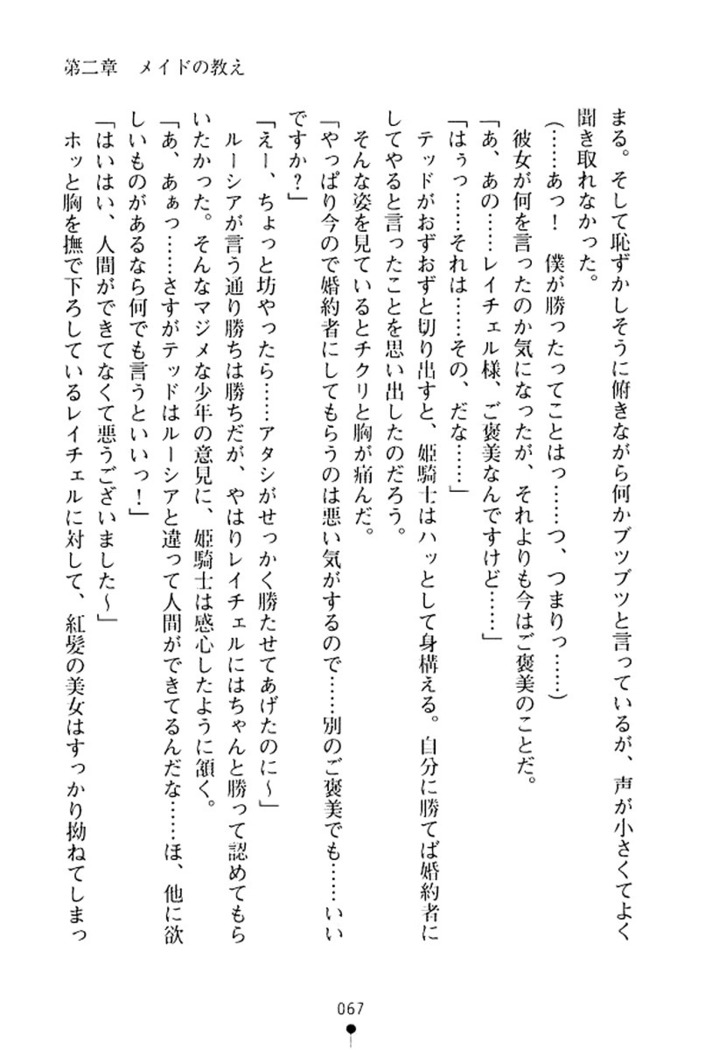 第二章　メイドの教え
まる。そして恥ずかしそうに俯きながら何かブツブツと言っているが、声が小さくてよく
聞き取れなかった。
（……あっ！　僕が勝ったってことはっ……つ、つまりっ……）
彼女が何を言ったのか気になったが、それよりも今はご褒美のことだ。
「あ、あの……レイチェル様、ご褒美なんですけど……」
「はぅっ……それは……その、だな……」
テッドがおずおずと切り出すと、姫騎士はハッとして身構える。自分に勝てば婚約者に
してやると言ったことを思い出したのだろう。
そんな姿を見ているとチクリと胸が痛んだ。
「やっぱり今ので婚約者にしてもらうのは悪い気がするので……別のご褒美でも……いい
ですか？」
「えー、ちょっと坊やったら……アタシがせっかく勝たせてあげたのに～」
ルーシアが言う通り勝ちは勝ちだが、やはりレイチェルにはちゃんと勝って認めてもら
いたかった。そんなマジメな少年の意見に、姫騎士は感心したように頷く。
「あ、あぁっ……さすがテッドはルーシアと違って人間ができてるんだな……ほ、他に欲
しいものがあるなら何でも言うといいっ！」
「はいはい、人間ができてなくて悪うございました～」
ホッと胸を撫で下ろしているレイチェルに対して、紅髪の美女はすっかり拗ねてしまっ
067